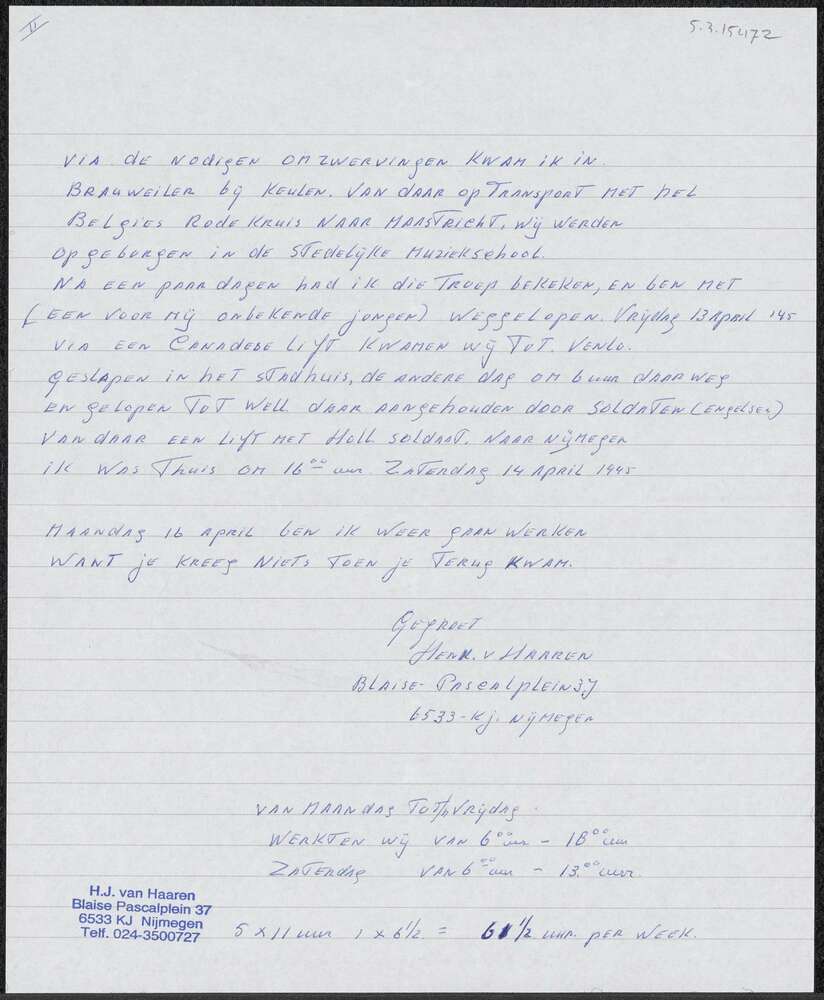 II
5.3.15472
VIA DE NODIGEN OMZWERVINGEN KWAM IK IN
BRAUWEILER bij KEULEN. VAN DAAR OP TRANSPORT MET HET
BELGIES RODE KRUIS NAAR MAASTRICHT, WIJ WERDEN
OPGEBORGEN IN DE STEDELIJKE MUZIEKSCHOOL.
NA EEN PAAR DAGEN HAD IK DIE TROEP BEKEKEN, EN BEN MET
(EEN VOOR MIJ ONBEKENDE JONGEN) WEGGELOPEN. VRIJDAG 13 APRIL '45
VIA EEN CANADESE LIFT KWAMEN WIJ TOT VENLO.
GESLAPEN IN HET STADHUIS, DE ANDERE DAG OM 6 UUR DAAR WEG
EN GELOPEN TOT WELL DAAR AANGEHOUDEN DOOR SOLDATEN (ENGELSEN)
VAN DAAR EEN LIFT MET HOLL SOLDAAT. NAAR NIJMEGEN
IK WAS THUIS OM 16⁰⁰ UUR ZATERDAG 14 APRIL 1945
MAANDAG 16 APRIL BEN IK WEER GAAN WERKEN
WANT JE KREEG NIETS TOEN JE TERUG KWAM.
GEGROET
HENK. V HAAREN
BLAISE-PASCALPLEIN 37
6533-KJ. NIJMEGEN
VAN MAANDAG TOT/M VRIJDAG
WERKTEN WIJ VAN 6⁰⁰ UUR - 18⁰⁰ UUR
ZATERDAG VAN 6⁰⁰ UUR - 13.⁰⁰ UUR.
H.J. van Haaren
Blaise Pascalplein 37
6533 KJ Nijmegen
Telf. 024-3500727
5 X 11 UUR 1 X 6 1/2 = 61 1/2 UUR. PER WEEK.